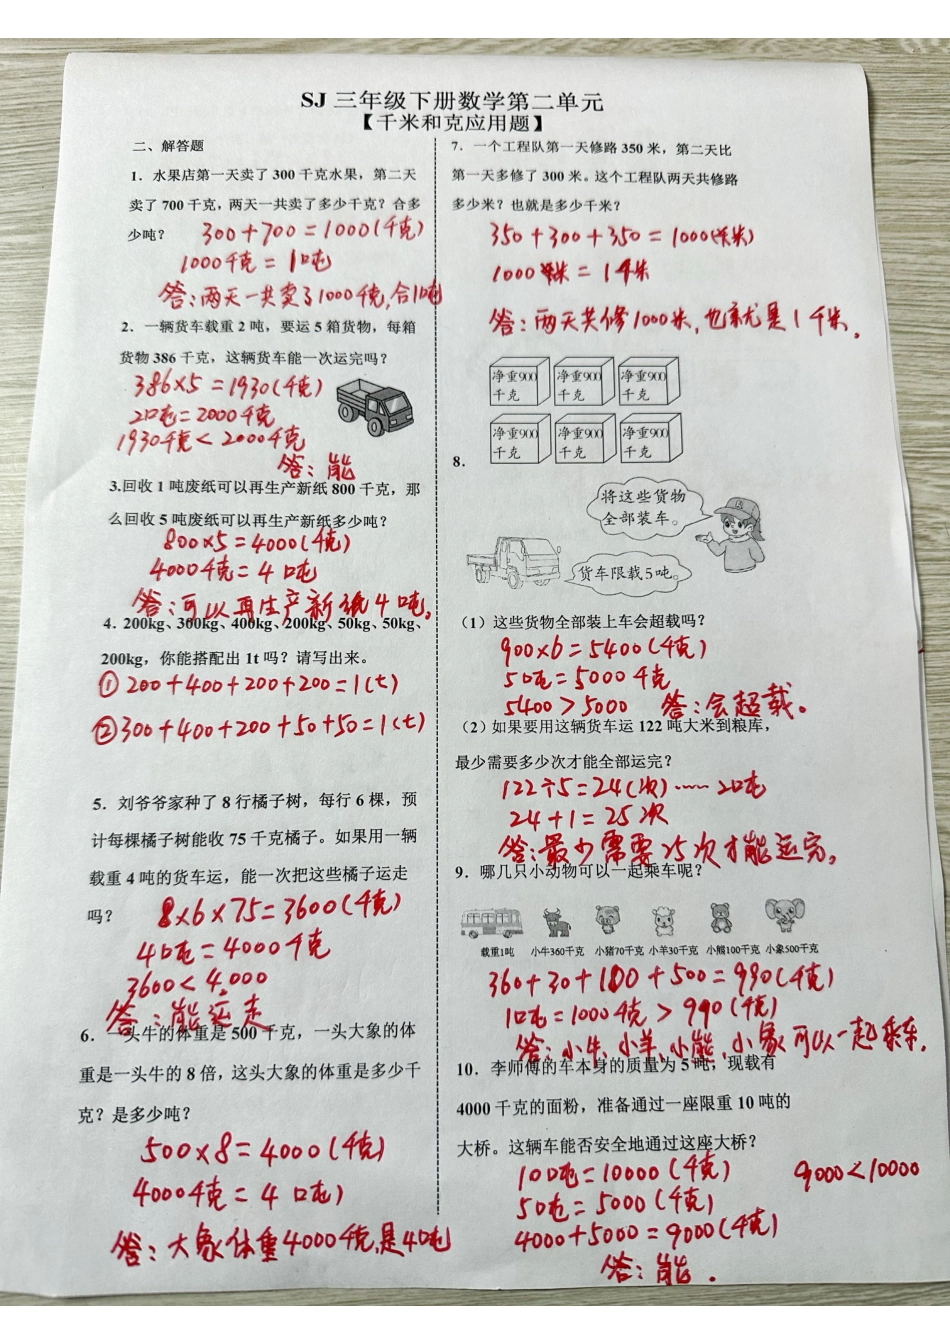 SJ 三年级下册数学第二单元
【千米和克应用题】
二、解答题
1．水果店第一天卖了 300 千克水果，第二天
卖了 700 千克，两天一共卖了多少千克？合多
少吨？
300+700=1000(千克)
1000千克=1吨
答：两天一共卖了1000千克,合1吨
2．一辆货车载重 2 吨，要运 5 箱货物，每箱
货物 386 千克，这辆货车能一次运完吗？
386×5=1930(千克)
2吨=2000千克
1930千克<2000千克
答：能
3.回收 1 吨废纸可以再生产新纸 800 千克，那
么回收 5 吨废纸可以再生产新纸多少吨？
800×5=4000(千克)
4000千克=4吨
答：可以再生产新纸4吨。
4．200kg、300kg、400kg、200kg、50kg、50kg、
200kg，你能搭配出 1t 吗？请写出来。
①200+400+200+200=1(t)
②300+400+200+50+50=1(t)
5．刘爷爷家种了 8 行橘子树，每行 6 棵，预
计每棵橘子树能收 75 千克橘子。如果用一辆
载重 4 吨的货车运，能一次把这些橘子运走
吗？
8×6×75=3600(千克)
4吨=4000千克
3600<4000
答：能运走
6．一头牛的体重是 500 千克，一头大象的体
重是一头牛的 8 倍，这头大象的体重是多少千
克？是多少吨？
500×8=4000(千克)
4000千克=4吨)
答：大象体重4000千克,是4吨
7．一个工程队第一天修路 350 米，第二天比
第一天多修了 300 米。这个工程队两天共修路
多少米？也就是多少千米？
350+300+350=1000(米)
1000米=1千米
答：两天共修1000米,也就是1千米。
净重900千克
净重900千克
净重900千克
净重900千克
净重900千克
净重900千克
8．
将这些货物
全部装车。
货车限载5吨。
（1）这些货物全部装上车会超载吗？
900×6=5400(千克)
5吨=5000千克
5400>5000 答：会超载。
（2）如果要用这辆货车运 122 吨大米到粮库，
最少需要多少次才能全部运完？
122÷5=24(次)……2吨
24+1=25次
答：最少需要25次才能运完。
9．哪几只小动物可以一起乘车呢？
载重1吨 小牛360千克 小猪70千克 小羊30千克 小熊100千克 小象500千克
360+30+100+500=990(千克)
1吨=1000千克>990(千克)
答：小牛,小羊,小熊,小象可以一起乘车.
10．李师傅的车本身的质量为 5 吨，现载有
4000 千克的面粉，准备通过一座限重 10 吨的
大桥。这辆车能否安全地通过这座大桥？
10吨=10000(千克) 9000<10000
5吨=5000(千克)
4000+5000=9000(千克)
答：能．